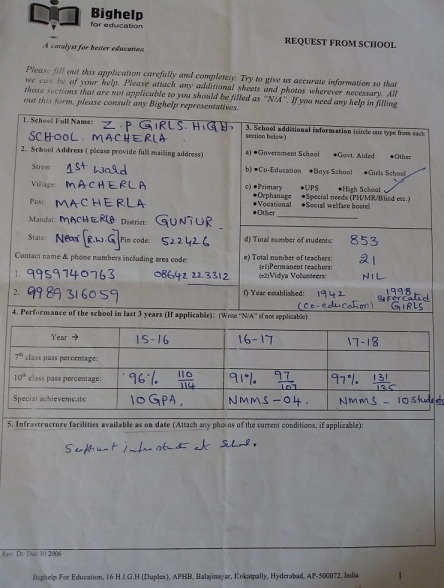 Bighelp
for education
A catalyst for better education
REQUEST FROM SCHOOL
Please fill out this application carefully and completely. Try to give us accurate information so that
we can be of your help. Please attach any additional sheets and photos wherever necessary. All
those sections that are not applicable to you should be filled as "N/A". If you need any help in filling
out this form, please consult any Bighelp representatives.
1. School Full Name: Z.P GIRLS HIGH
SCHOOL. MACHERLA
2. School Address (please provide full mailing address)
Street 1st Ward
Village MACHERLA
Post MACHERLA
Mandal: MACHERLA District: GUNTUR
State: Near [R.W.G] Pin code: 522426
Contact name & phone numbers including area code:
1. 9959740763 08642 223312
2. 9989316059
3. School additional information (circle one type from each
section below)
a) •Government School •Govt. Aided •Other
b) •Co-Education •Boys School •Girls School
c) •Primary •UPS •High School
•Orphanage •Special needs (PH/MR/Blind etc.)
•Vocational •Social welfare hostel
•Other
d) Total number of students: 853
e) Total number of teachers: 21
(e1)Permanent teachers:
(e2)Vidya Volunteers: NIL
f) Year established: 1942 1998
(Co-education) GIRLS
4. Performance of the school in last 3 years (If applicable): (Write "N/A" if not applicable)
Year → 15-16 16-17 17-18
7th class pass percentage:
10th class pass percentage: 96% 110/114 91% 97/107 97% 131/135
Special achievements: 10 GPA, NMMS-04. NMMS - 10 Students
5. Infrastructure facilities available as on date (Attach any photos of the current conditions, if applicable):
at School.
Rev. Dt: Dec 30 2006
Bighelp For Education, 16 H.I.G.H (Duplex), APHB, Balajinagar, Kukatpally, Hyderabad, AP-500072, India 1